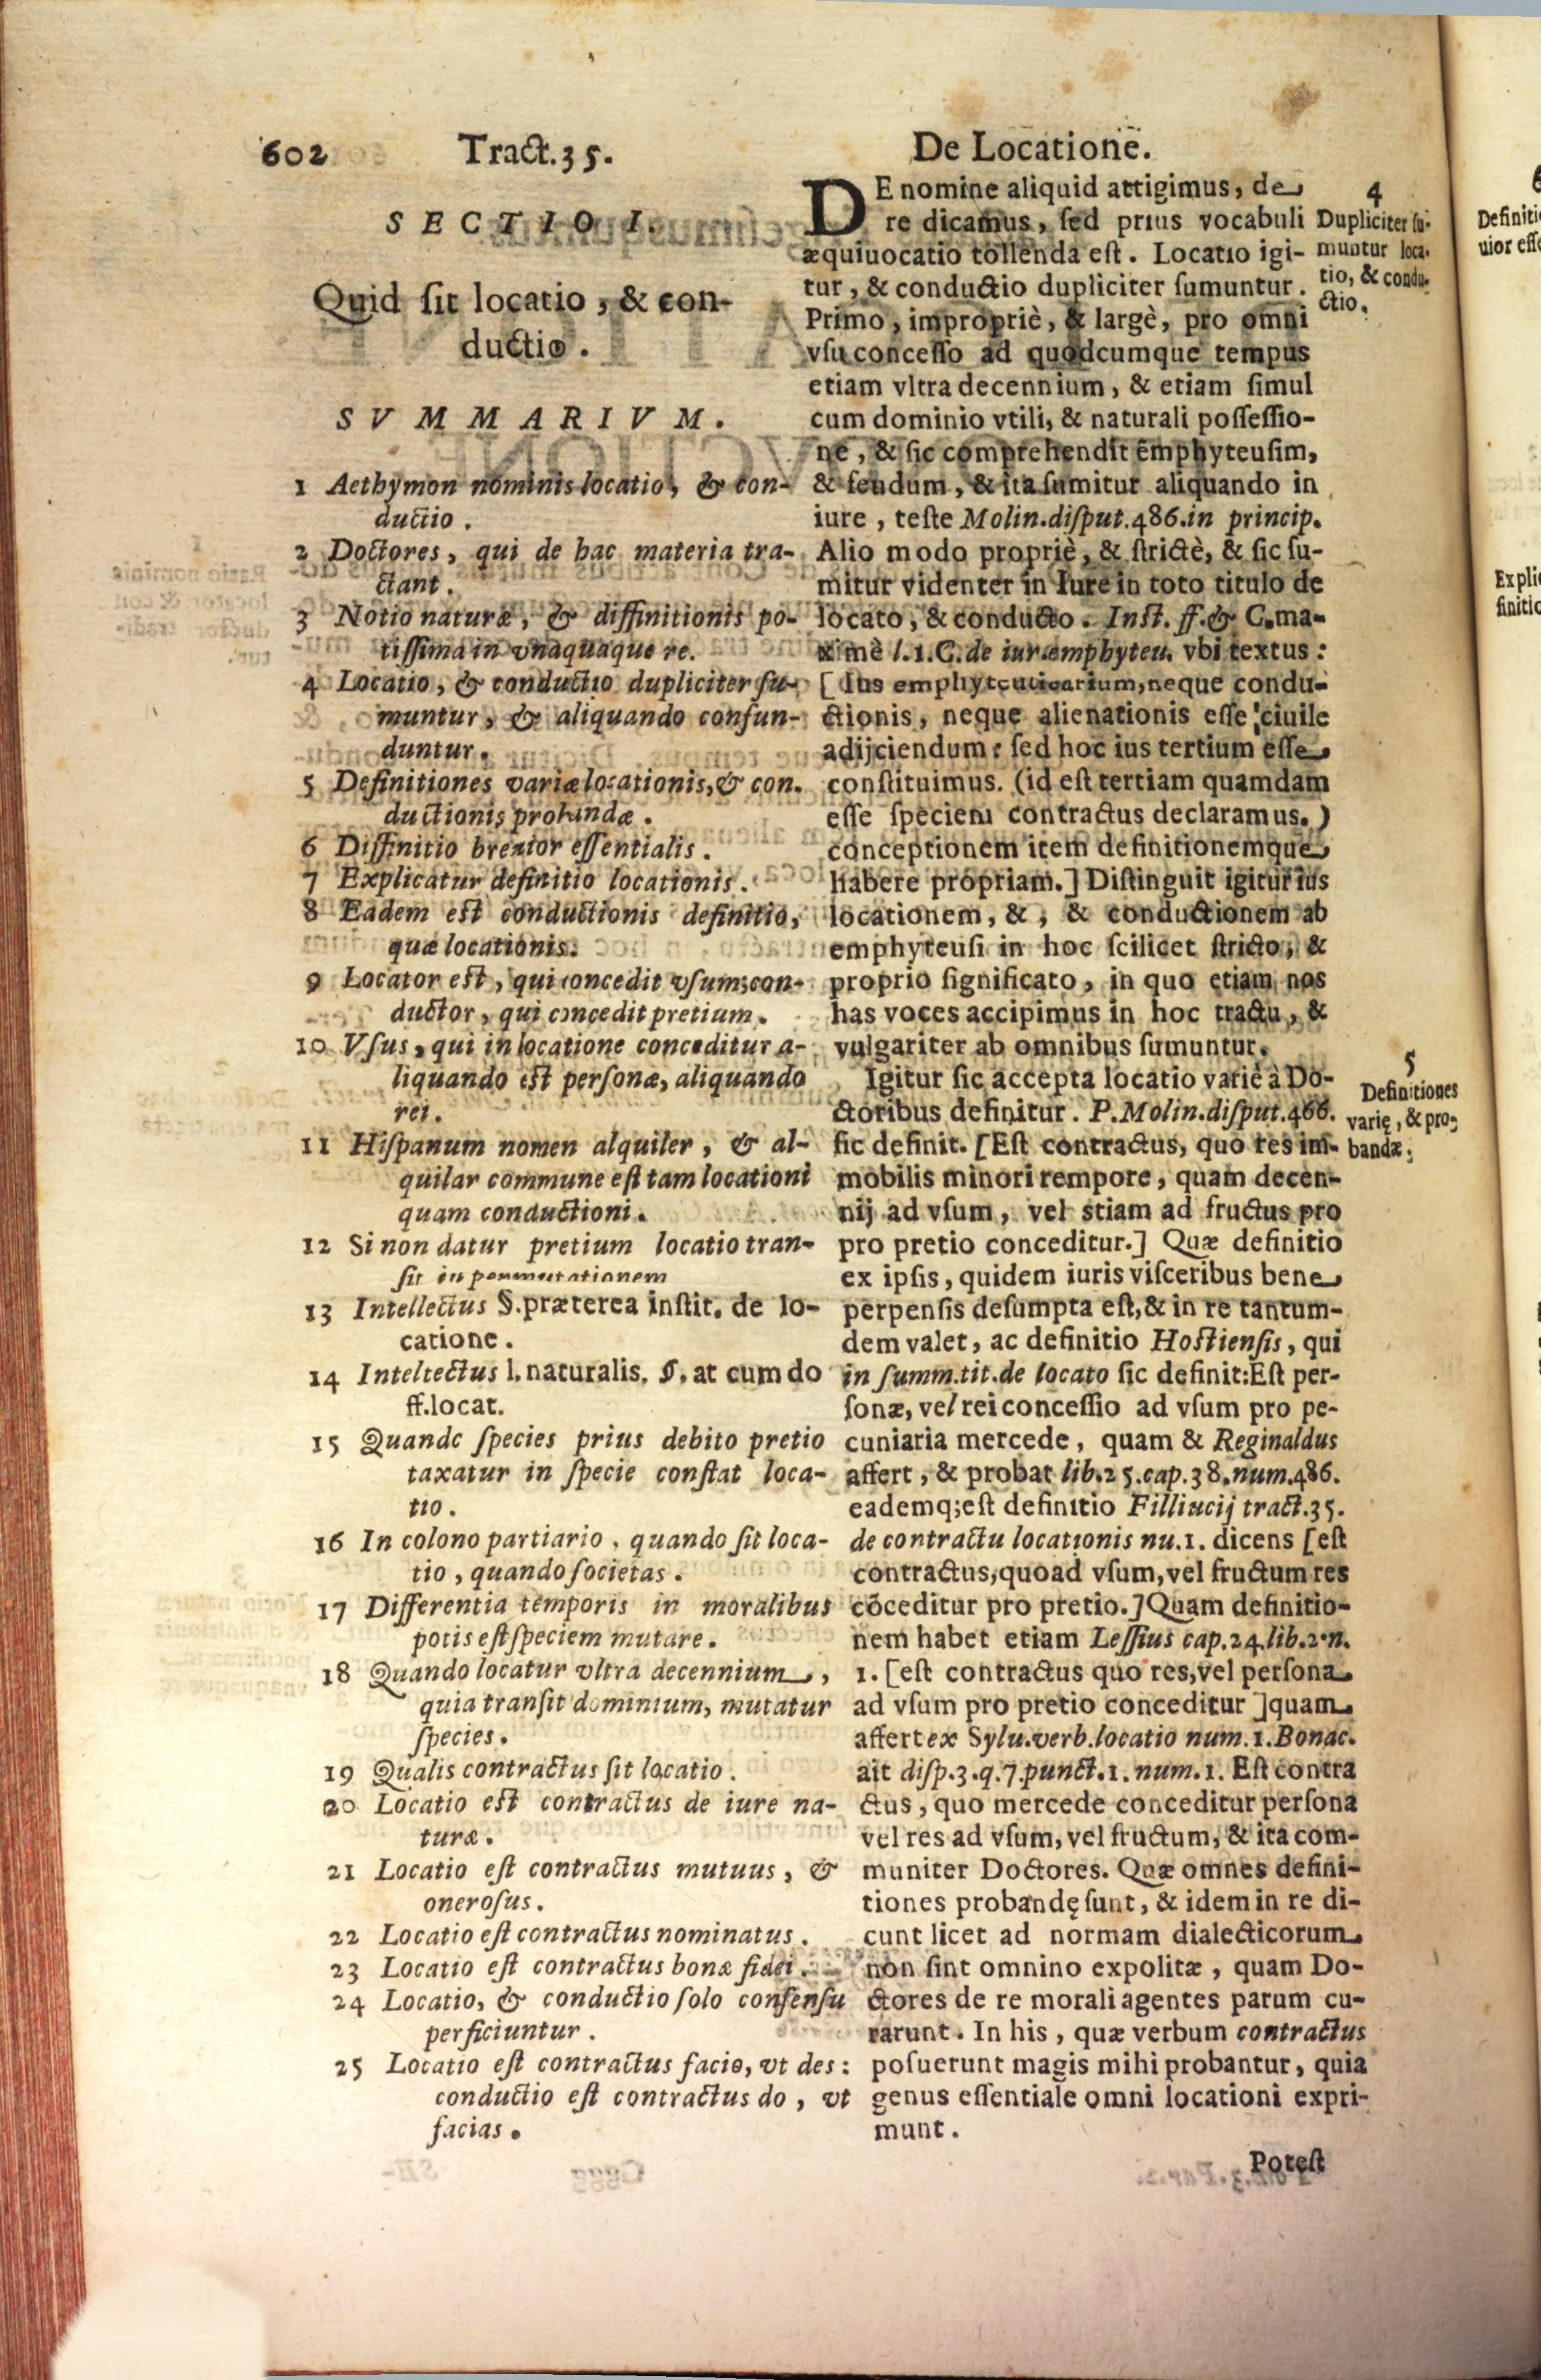 602
Tract.35.
De Locatione.
SECTIO I.
Quid ſit locatio, & con-
ductio.
SVMMARIVM.
1 Aethymon nominis locatio, & con-
ductio.
2 Doctores, qui de hac materia tra-
ctant.
3 Notio naturæ, & diffinitionis po-
tiſſima in vnaquaque re.
4 Locatio, & conductio dupliciter ſu-
muntur, & aliquando confun-
duntur.
5 Definitiones variæ locationis, & con.
ductionis probandæ.
6 Diffinitio breuior eſſentialis.
7 Explicatur definitio locationis.
8 Eadem eſt conductionis definitio,
quæ locationis.
9 Locator eſt, qui concedit vſum; con-
ductor, qui concedit pretium.
10 Vſus, qui in locatione conceditur a-
liquando eſt perſonæ, aliquando
rei.
11 Hiſpanum nomen alquiler, & al-
quilar commune eſt tam locationi
quam conductioni.
12 Si non datur pretium locatio tran-
ſit in permutationem
13 Intellectus §. præterea inſtit. de lo-
catione.
14 Inteltectus l. naturalis. §. at cum do
ff. locat.
15 Quando ſpecies prius debito pretio
taxatur in ſpecie conſtat loca-
tio.
16 In colono partiario, quando ſit loca-
tio, quando ſocietas.
17 Differentia temporis in moralibus
potis eſt ſpeciem mutare.
18 Quando locatur vltra decennium,
quia tranſit dominium, mutatur
ſpecies.
19 Qualis contractus ſit locatio.
20 Locatio eſt contractus de iure na-
turæ.
21 Locatio eſt contractus mutuus, &
oneroſus.
22 Locatio eſt contractus nominatus.
23 Locatio eſt contractus bonæ fidei.
24 Locatio, & conductio ſolo conſenſu
perficiuntur.
25 Locatio eſt contractus facio, vt des:
conductio eſt contractus do, vt
facias.
DE nomine aliquid attigimus, de
re dicamus, ſed prius vocabuli
æquiuocatio tollenda eſt. Locatio igi-
tur, & conductio dupliciter ſumuntur.
Primo, impropriè, & largè, pro omni
vſu conceſſo ad quodcumque tempus
etiam vltra decennium, & etiam ſimul
cum dominio vtili, & naturali poſſeſſio-
ne, & ſic comprehendit emphyteuſim,
& feudum, & ita ſumitur aliquando in
iure, teſte Molin. diſput. 486. in princip.
Alio modo propriè, & ſtrictè, & ſic ſu-
mitur videnter in Iure in toto titulo de
locato, & conducto. Inſt. ff. & C. ma-
ximè l. 1. C. de iur. emphyteu. vbi textus:
[Ius emphyteuticarium, neque condu-
ctionis, neque alienationis eſſe ciuile
adijciendum: ſed hoc ius tertium eſſe
conſtituimus. (id eſt tertiam quamdam
eſſe ſpeciem contractus declaramus.)
conceptionem item definitionemque
habere propriam.] Diſtinguit igitur ius
locationem, &, & conductionem ab
emphyteuſi in hoc ſcilicet ſtricto, &
proprio ſignificato, in quo etiam nos
has voces accipimus in hoc tractu, &
vulgariter ab omnibus ſumuntur.
Igitur ſic accepta locatio variè à Do-
ctoribus definitur. P. Molin. diſput. 466.
ſic definit. [Eſt contractus, quo res im-
mobilis minori rempore, quam decen-
nij ad vſum, vel stiam ad fructus pro
pro pretio conceditur.] Quæ definitio
ex ipſis, quidem iuris viſceribus bene
perpenſis deſumpta eſt, & in re tantum-
dem valet, ac definitio Hoſtienſis, qui
in ſumm. tit. de locato ſic definit: Eſt per-
ſonæ, vel rei conceſſio ad vſum pro pe-
cuniaria mercede, quam & Reginaldus
affert, & probat lib. 25. cap. 38. num. 486.
eademq; eſt definitio Filliucij tract. 35.
de contractu locationis nu. 1. dicens [eſt
contractus, quoad vſum, vel fructum res
cõceditur pro pretio.] Quam definitio-
nem habet etiam Leſſius cap. 24. lib. 2. n.
1. [eſt contractus quo res, vel perſona
ad vſum pro pretio conceditur] quam
affert ex Sylu. verb. locatio num. 1. Bonac.
ait diſp. 3. q. 7. punct. 1. num. 1. Eſt contra
ctus, quo mercede conceditur perſona
vel res ad vſum, vel fructum, & ita com-
muniter Doctores. Quæ omnes defini-
tiones probandę ſunt, & idem in re di-
cunt licet ad normam dialecticorum
non ſint omnino expolitæ, quam Do-
ctores de re morali agentes parum cu-
rarunt. In his, quæ verbum contractus
poſuerunt magis mihi probantur, quia
genus eſſentiale omni locationi expri-
munt.
Poteſt
4
Dupliciter ſu-
muntur loca-
tio, & condu-
ctio.
5
Definitiones
varię, & pro-
bandæ.